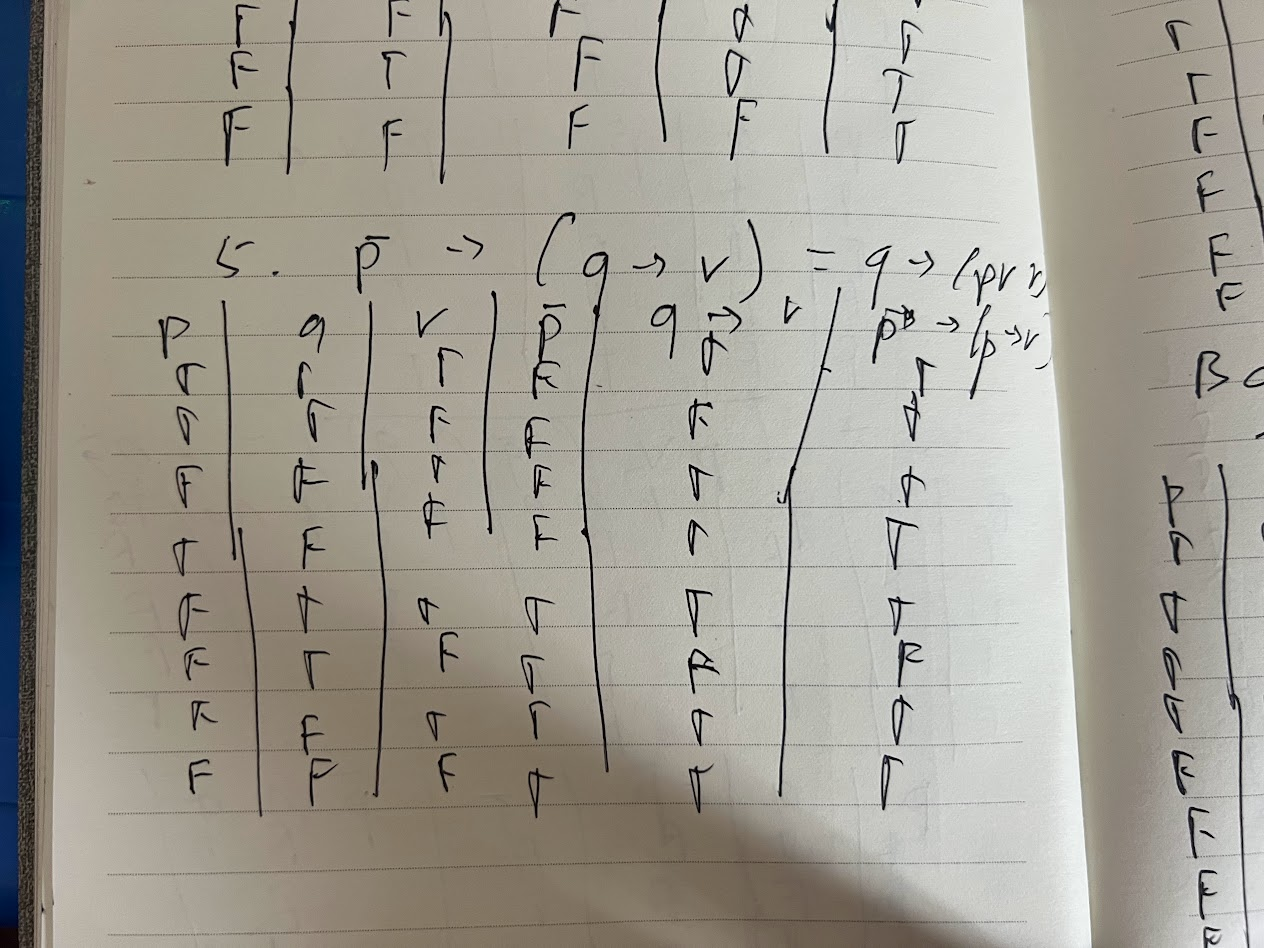 T F F T T
F T F T T
F F F F T
5. p̄ → (q → r) = q → (p v r)
p q r p̄ q → r p̄ → (p → r)
T T T F T T
T T F F F T
F F T F T T
T F F F T T
F T T T T T
F T F T F F
F F T T T T
F F F T T T
T
T
F
F
F
F
B
P
T
T
T
T
F
F
F
F